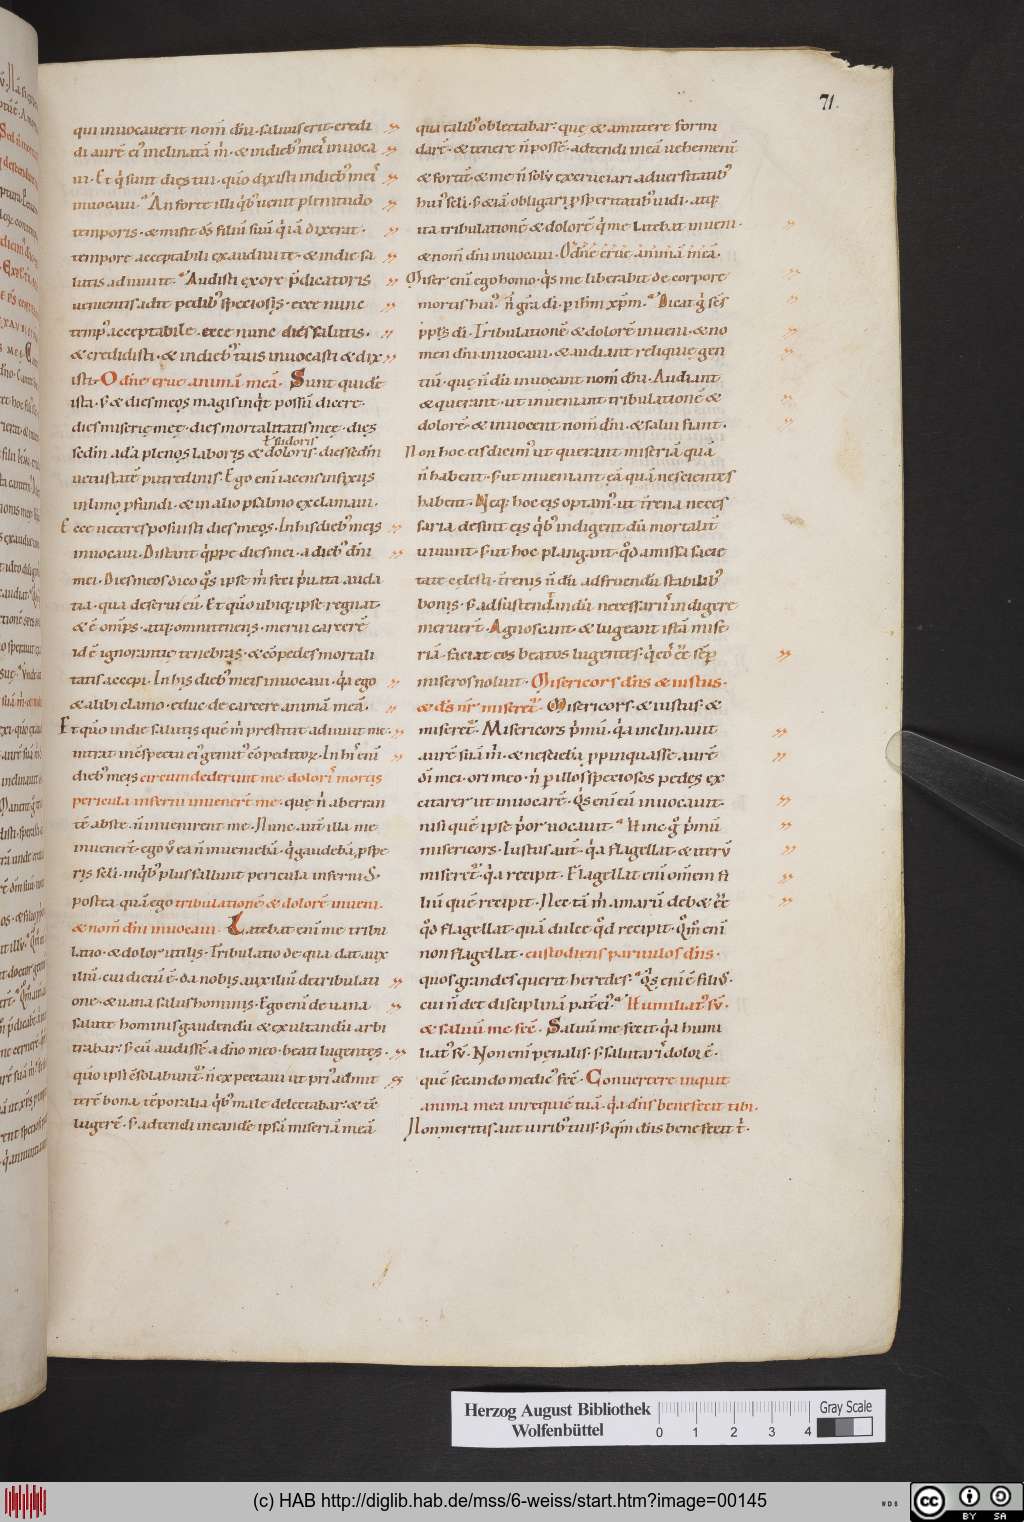 71.
qui inuocauerit nom̄ dn̄i · saluus erit · credi
di aurē ei᾽ inclinatā m̄ · & in dieb᾽ meis inuoca
ui · Et q̇ sunt dies tui · quō dixisti in dieb᾽ meis
inuocaui · An forte illi q̇b᾽ uenit plenitudo
temporis · & misit d̄s filiū suū q̇ iā dixerat ·
tempore acceptabili exaudiui te · & in die sa
lutis adiuui te · Audisti ex ore p̄dicatoris
uenientis ad te pedib᾽ speciosis · ecce nunc
temp᾽ acceptabile · ecce nunc dies salutis ·
& credidisti · & in dieb᾽ tuis inuocasti & dix
isti · O dn̄e erue animā meā · Sunt quidē
ista · s̄ & dies meos magis inq̇t possū dicere ·
dies miserię meę · dies mortalitatis meę · dies
ł sudoris
sc̄dm adā plenos laboris & doloris · dies sc̄dm
uetustatē putredinis · Ego enī iacens infixus
in limo p̄fundi · & in alio psalmo exclamaui ·
Ecce ueteres posuisti dies meos · In his dieb᾽ meis
inuocaui · Distant q̇ppe dies mei · a dieb᾽ dn̄i
mei · Dies meos dico q̇s ipse m̄ feci p̄uata auda
tia · qua deserui eū · Et qūo ubiq; ipse regnat
& ē omp̄s · atq; omnitenens · merui carcerē
id ē ignorantię tenebras · & cōpedes mortali
tatis accepi · In his dieb᾽ meis inuocaui · q̇a ego
& alibi clamo · educ de carcere animā meā ·
Et qūo in die salutis quē m̄ prestitit adiuuit me ·
intrat in cōspectu ei᾽ gemit᾽ cōpeditoꝝ · In his enī
dieb᾽ meis circumdederunt me dolores mortis
pericula inferni inuenerē me · quę n̄ aberran
tē abs te · n̄ inuenirent me · Nunc aūt illa me
inuenerē · ego ū ea n̄ inueniebā · q̇ gaudebā p̄spe
ris scl̄i · in q̇b᾽ plus fallunt pericula inferni S ·
postea quā ego tribulationē & dolorē inueni ·
& nom̄ dn̄i inuocaui · Latebat enī me tribu
latio · & dolor utilis · Tribulatio de qua dat aux
iliū · cui dictū ē · da nobis auxiliū de tribulati
one · & uana salus hominis · Ego enī de uana
salute hominis gaudendū & exultandū arbi
trabar · s̄ cū audissē a dn̄o meo · beati lugentes ·
qūo ipsi cōsolabunt᾽ · n̄ expectaui ut pri᾽ admit
terē bona tēporalia q̇b᾽ male delectabar · & tc̄
lugerē · s̄ adtendi in eande ipsā miseriā meā
qua talib᾽ oblectabar · quę & amittere formi
darē · & tenere n̄ possē · adtendi meā uehement̄
& fortit̄ · & me n̄ solū excruciari aduersitatib᾽
hui᾽ scl̄i · s̄ & iā obligari p̄speritatib᾽ uidi · atq;
ita tribulationē & dolorē q̇ me latebat inueni ·
& nom̄ dn̄i inuocaui · O dn̄e erue animā meā ·
Miser enī ego homo · q̇s me liberabit de corpore
mortis hui᾽ · n̄ gr̄a dī · p ihm̄ xp̄m · Dicat g̊ sc̄s
pp̄ls dī · Tribulationē & dolorē inueni · & no
men dn̄i inuocaui · & audiant reliquię gen
tiū · quę n̄ dū inuocant nom̄ dn̄i · Audiant
& querant · ut inueniant tribulationē &
dolorē · & inuocent nom̄ dn̄i · & salui fiant ·
Non hoc eis dicim᾽ ut querant miseriā quā
n̄ habent · s̄ ut inueniant eā quā nescientes
habent · Neq; hoc eis optam᾽ · ut t̄rena neces
saria desint eis q̇b᾽ indigent dū mortalit̄
uiuunt · s̄ ut hoc plangant · q̊d amissa sacie
tate cęlesti · t̄renis n̄ dū ad fruendū stabilib᾽
bonis · s̄ ad sustendandū necessariis indigere
meruerē · Agnoscant · & lugeant istā mise
riā · faciat eos beatos lugentes · q̇ eos ēē sēp
miseros noluit · Misericors dn̄s & iustus ·
& d̄s nr̄ miseret᾽ · Misericors · & iustus · &
miseret᾽ · Misericors p̄mū · q̇a inclinauit
aurē suā m̄ · & nesciebā ppinquasse aurē
dī mei · ori meo · n̄ p illos speciosos pedes ex
citarer ut inuocarē · Q̇s enī eū inuocauit
nisi quē ipse p̄or uocauit · Hinc g̊ p̄mū
misericors · Iustus aūt · q̇a flagellat · & iterū
miseret᾽ · q̇a recipit · Flagellat enī om̄em fi
liū quē recipit · Nec tā m̄ amarū deb& ēē
q̊d flagellat · quā dulce q̊d recipit · Qm̄ enī
non flagellat · custodiens paruulos dn̄s ·
quos grandes querit heredes · Q̇s enī ē filius ·
cui n̄ det disciplinā pat̄ ei᾽ · Humiliat᾽ sū ·
& saluū me fec̄ · Saluū me fecit · q̇a humi
liat᾽ sū · Non enī pęnalis · s̄ salutaris dolor ē ·
quē secando medic᾽ fec̄ · Conuertere inquit
anima mea in requiē tuā · q̇a dn̄s benefecit tibi ·
Non meritis aut uirib᾽ tuis · s̄ qm̄ dn̄s benefecit t̄ ·
Herzog August Bibliothek
Wolfenbüttel
0 1 2 3 4
Gray Scale
(c) HAB http://diglib.hab.de/mss/6-weiss/start.htm?image=00145
WDB
cc BY SA